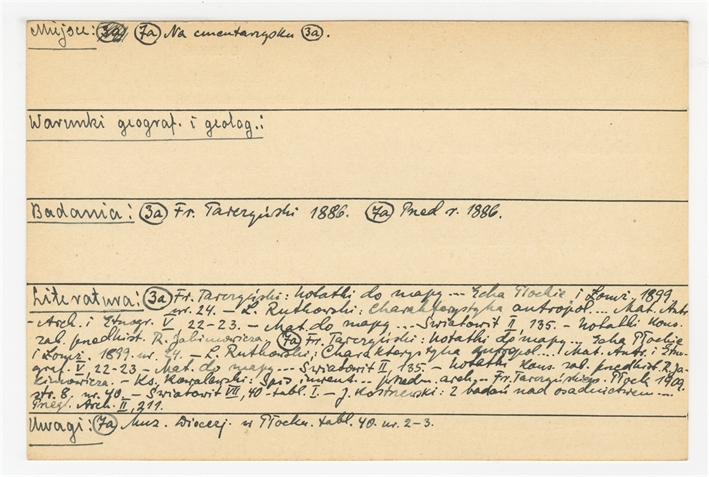 Miejsce: (7a) Na cmentarzysku (3a).
Warunki geograf. i geolog.:
Badania: (3a) Fr. Tarczyński 1886. (7a) Przed r. 1886.
Literatura: (3a) Fr. Tarczyński: Notatki do mapy... Echa Płockie i Łomż. 1899
nr. 24. – L. Rutkowski: Charakterystyka antropol... Mat. Antr.
Arch. i Etnogr. V 22-23. – Mat. do mapy... Światowit II, 135. – Notatki Kons.
zab. przedhist. R. Jakimowicza. (7a) Fr. Tarczyński: Notatki do mapy... Echa Płockie
i Łomż. 1899 nr. 24. – L. Rutkowski: Charakterystyka antropol... Mat. Antr. i Etno-
graf. V, 22-23 – Mat. do mapy... Światowit II, 135. – Notatki Kons. zab. przedhist. R. Ja-
kimowicza. – Ks. Kowalewski: Spis inwent... przedm. arch. – Fr. Tarczyńskiego. Płock 1909.
str. 8, nr. 40 – Światowit VII, 40 tabl. I. – J. Kostrzewski: Z badań nad osadnictwem...
Przegl. Arch. II, 211.
Uwagi: (7a) Muz. Diecezj. w Płocku. tabl. 40. nr. 2-3.